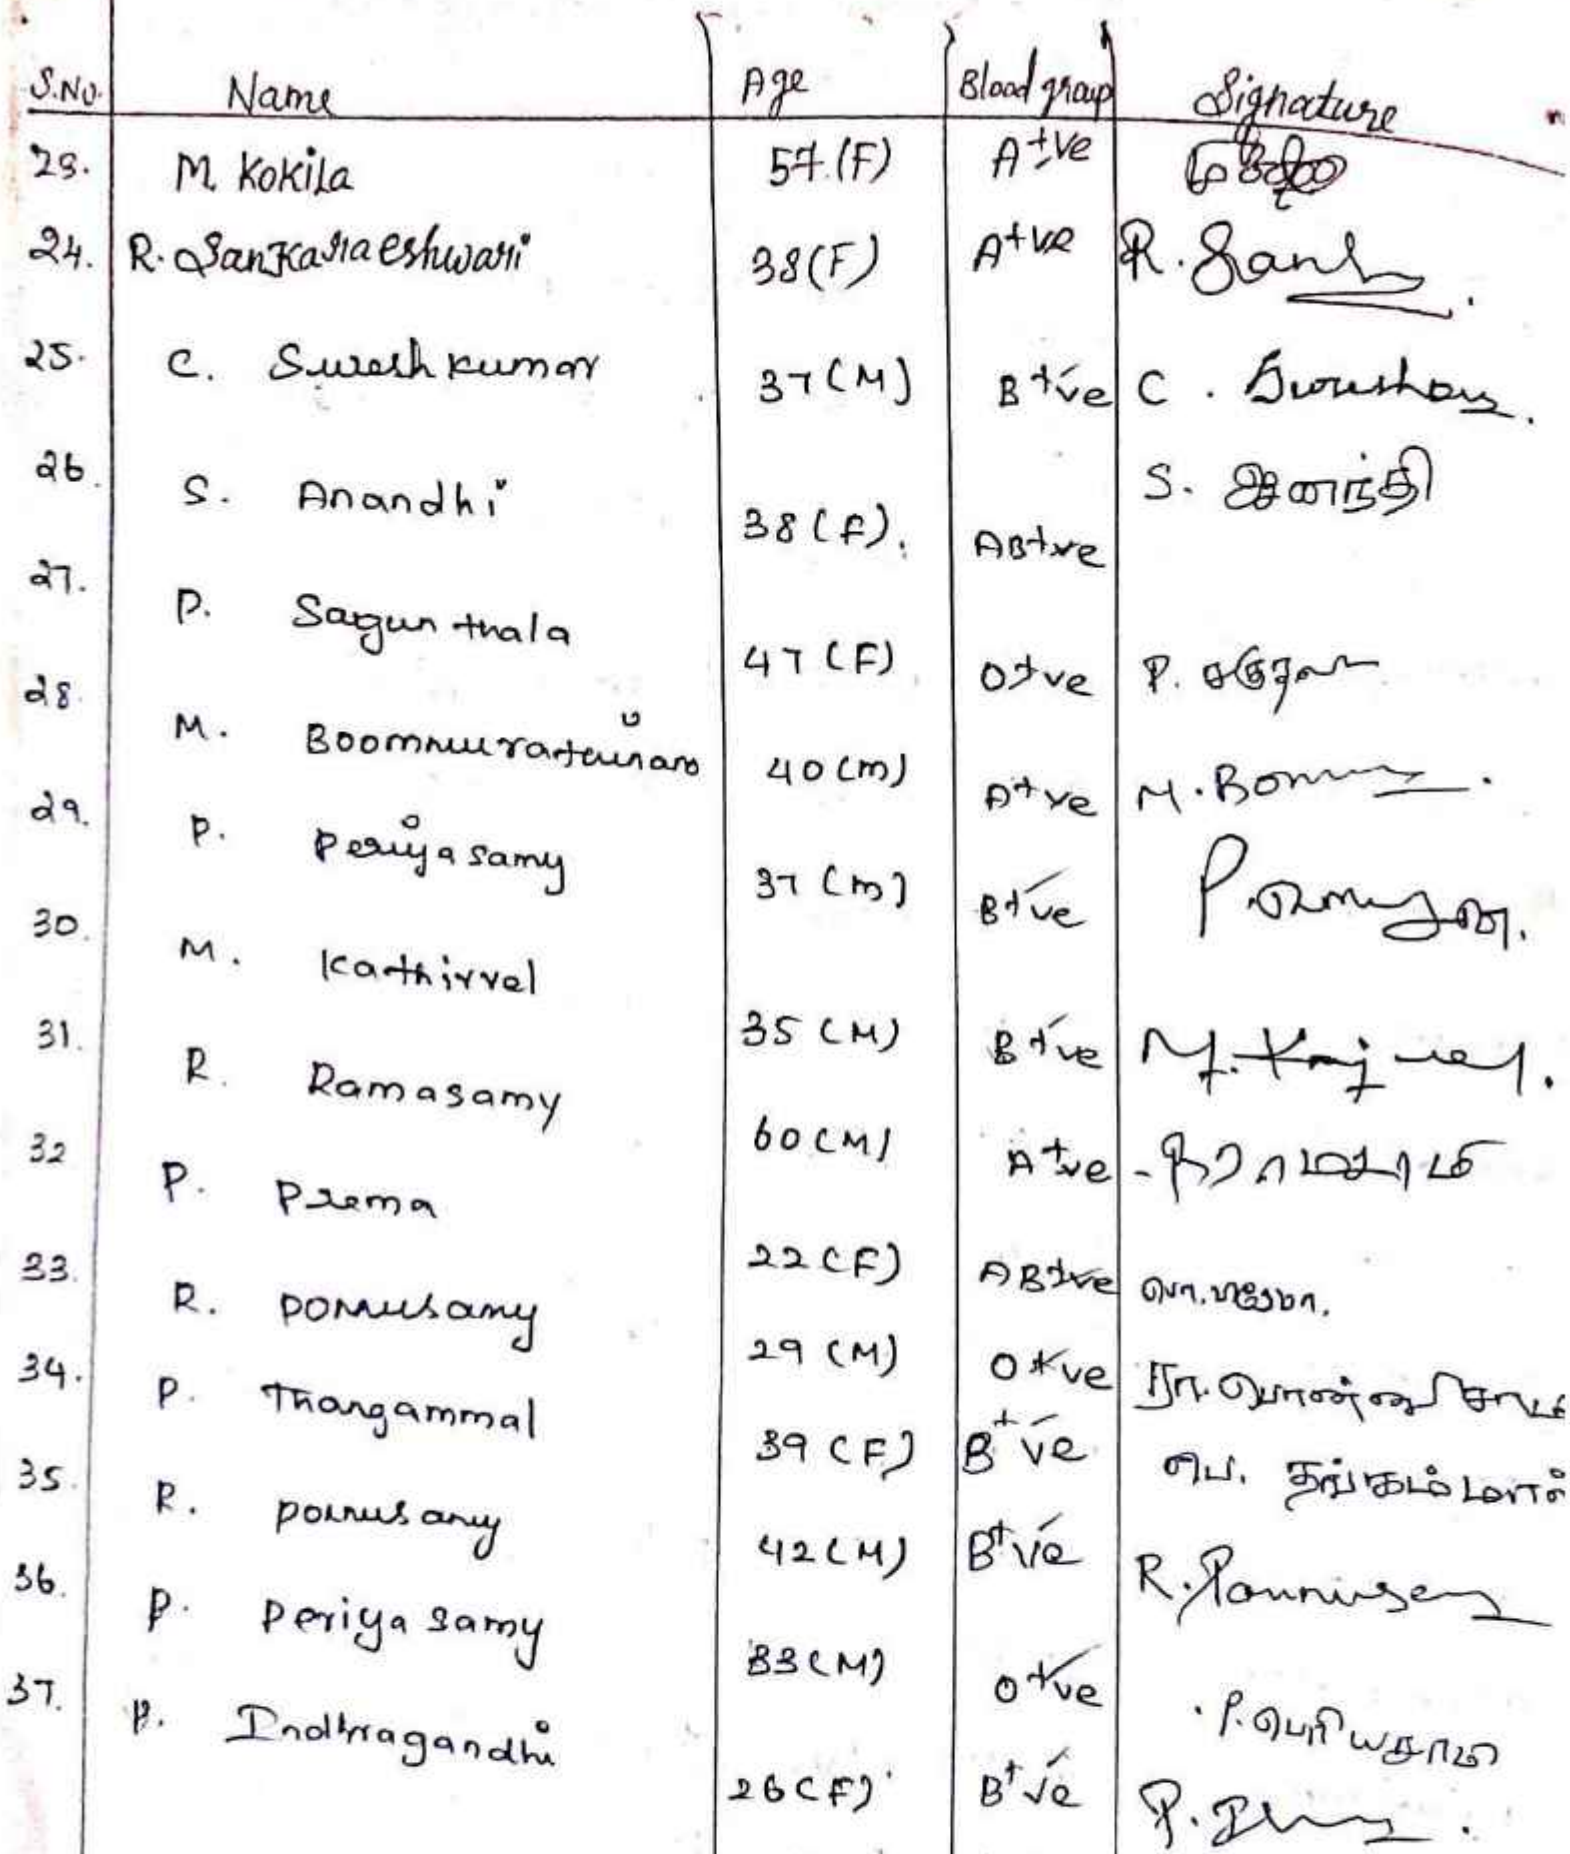 S.No. Name Age Blood group Signature
23. M. Kokila 57.(F) A+ve
24. R. Sankaraeshwari 38(F) A+ve R. Sank
25. C. Sureshkumar 37(M) B+ve C.
26. S. Anandhi 38(F). AB+ve S. ஆனந்தி
27. P. Sagunthala 47(F) O+ve P.
28. M. 40(M) A+ve M.
29. P. Periyasamy 37(M) B+ve
30. M. Kathirvel 35(M) B+ve M.
31. R. Ramasamy 60(M) A+ve
32 P. Prema 22(F) AB+ve
33. R. Ponnusamy 29(M) O+ve ரா. பொன்னுசாமி
34. P. Thangammal 39(F) B+ve பெ. தங்கம்மாள்
35. R. Ponnusamy 42(M) B+ve R.
36. P. Periyasamy 33(M) O+ve P. பெரியசாமி
37. P. Indhragandhi 26(F) B+ve P.